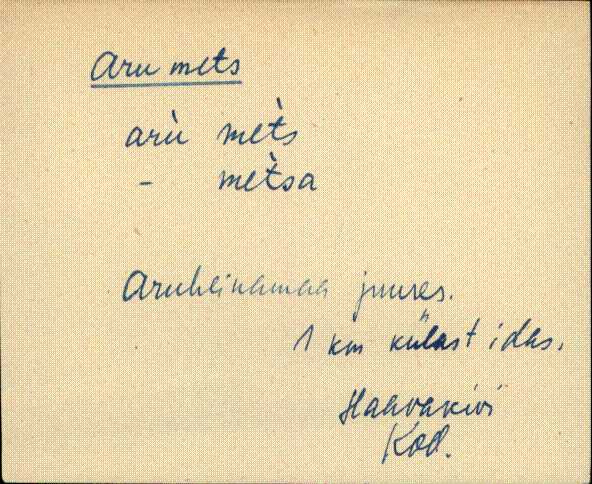 Aru mets
arù mèts
- mètsa
Aruheinamaa juures.
1 km külast idas.
Haavakivi
Kod.